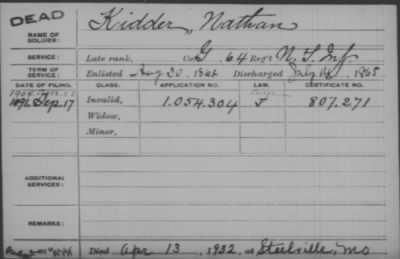 DEAD
NAME OF SOLDIER: Kidder, Nathan
SERVICE: Late rank, Co. G, 64 Reg't N.Y. Inf
TERM OF SERVICE: Enlisted Aug 30, 1864 Discharged July 14, 1865
DATE OF FILING. CLASS. APPLICATION NO. LAW. CERTIFICATE NO.
1891 Sep. 17 Invalid, 1.054.304 J 807.271
Widow,
Minor,
ADDITIONAL SERVICES:
REMARKS:
Died Apr 13, 1932, at Steelville, Mo